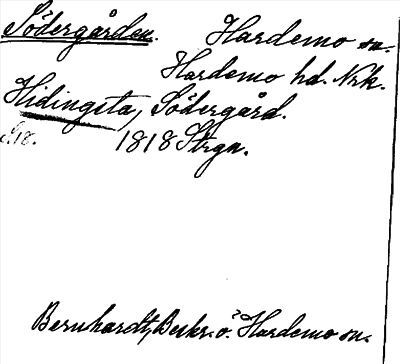 Södergården. Hardemo sn.
Hardemo hd. Nrk.
Hidingsta, Södergård.
1818 Strgn.
Bernhardt, Beskr. ö. Hardemo sn.